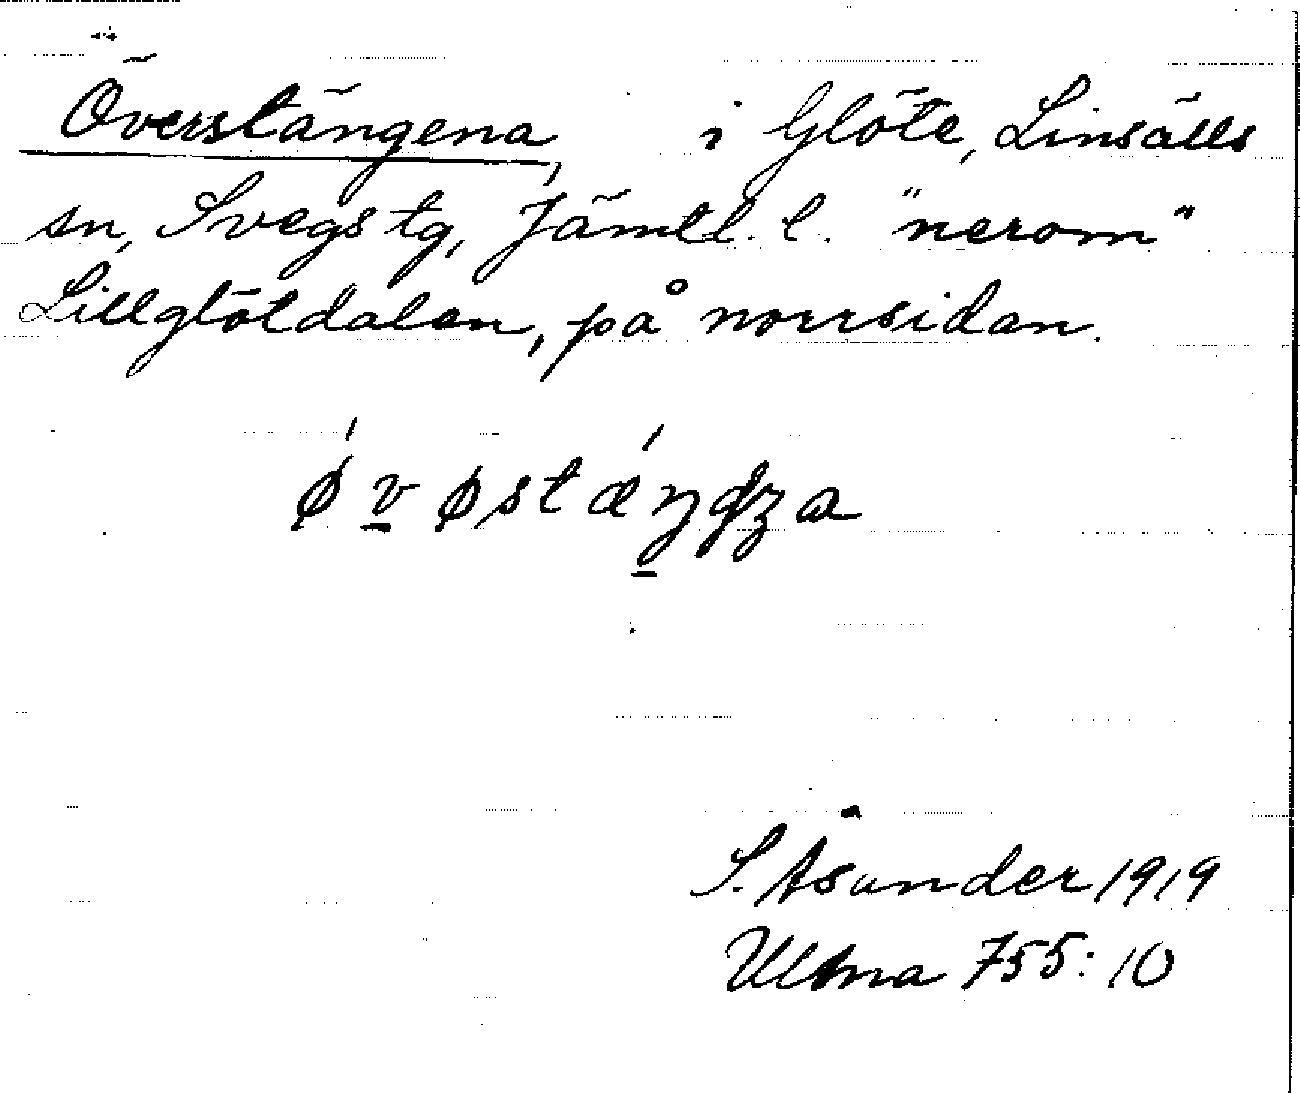 Överstängena, i Glöte, Linsälls
sn, Svegs tg, Jämtl. l. "nerom"
Lillglötdalen, på norrsidan.
S. Åsander 1919
Ulma 755:10